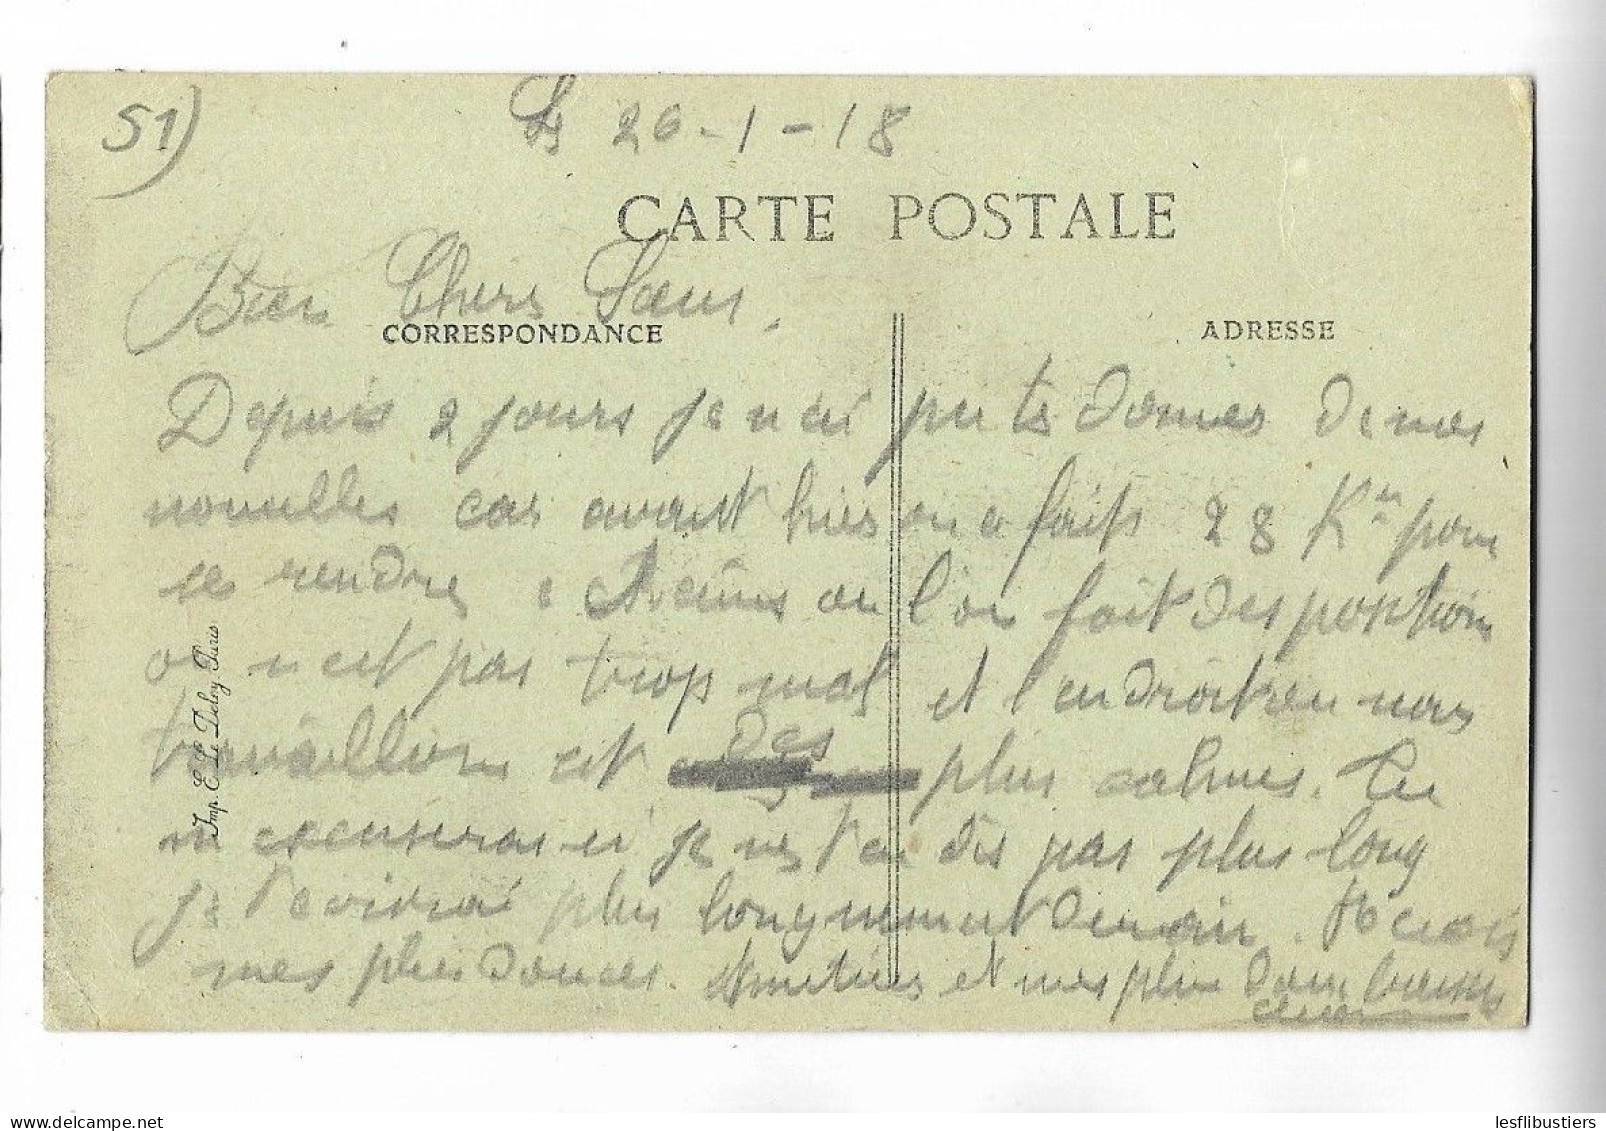 51)
Le 20-1-18
CARTE POSTALE
Bien Chere Sœur.
CORRESPONDANCE
ADRESSE
Depuis 2 jours je n ai pu te donner de mes
nouvelles car avant hier on a faits 28 Km pour
se rendre a ou l'on fait des position
o n est pas trop mal et l'endroit ou nous
travaillon est des plus calmes. Tu
m excuseras si je ne t'en dis pas plus long
je t'ecrirai plus longuement demain. Recois
mes plus douces Amitiées et mes plus doux baisers
Imp. E. Le Deley, Paris
lesflibustiers